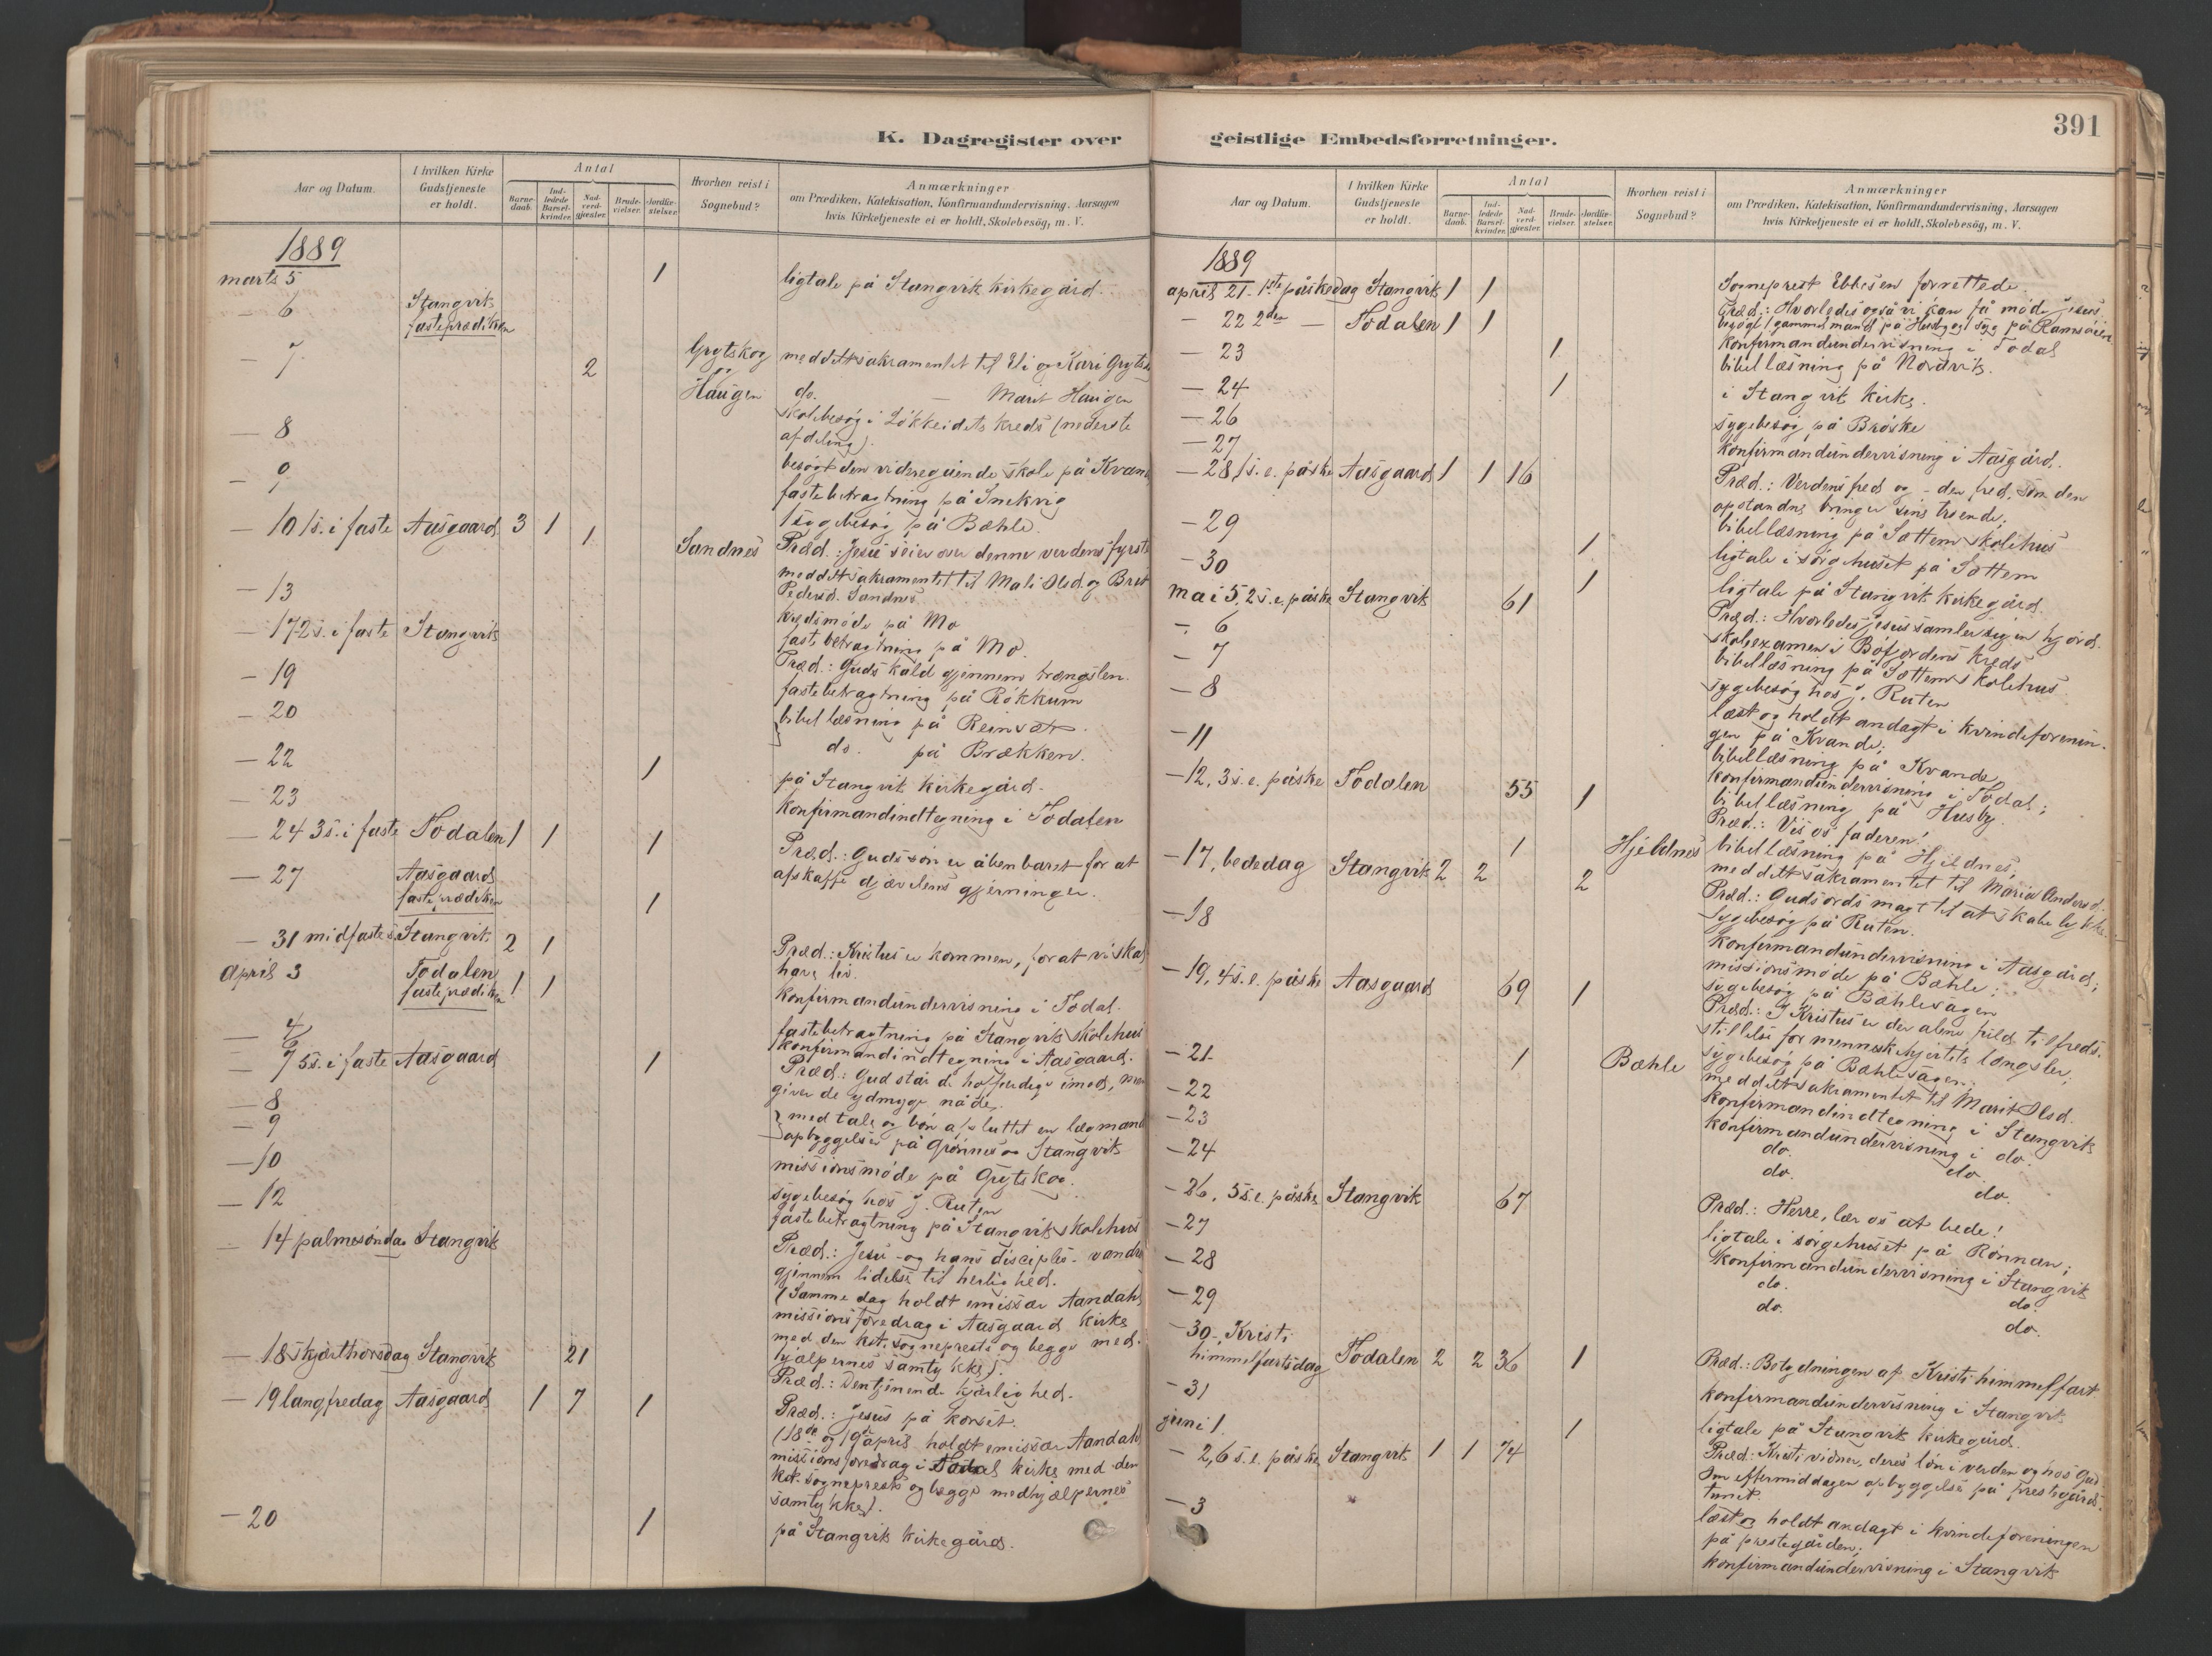 K. Dagregister over
Aar og Datum.
I hvilken Kirke Gudstjeneste er holdt.
Antal
Barne-daab.
Ind-ledede Barsel-kvinder.
Nad-verd-gjester.
Brude-vielser.
Jordfæ-stelser.
Hvorhen reist i Sognebud?
Anmærkninger
om Prædiken, Katekisation, Konfirmandundervisning, Aarsagen
hvis Kirketjeneste ei er holdt, Skolebesög, m. V.
1889
marts 5 1 ligtale på Stangvik kirkegård.
— 6 Stangvik
fasteprædiken
— 7 2 Grytskog meddelt sakramentet til Eli og Kari
og
Haugen do. — Marit Haugen
— 8 skolebesøg i Løkkeidets kreds (nederste
afdeling).
— 9 besøgt den videregående skole på
fastebetragtning på
1 sygebesøg på Bæhle.
— 10 1 s. i faste Aasgaard 3 1 1 Sandnes Præd.: Jesu seier over denne verdens fyrste
meddelt sakramentet til Mali Olsd. og Brit
Pedersd. Sandnes
— 13 kredsmøde på Mo
fastebetragtning på Mo.
— 17 2 s. i faste Stangvik Præd.: Guds kald gjennem trængslen.
— 19 fastebetragtning på Røkkum
— 20 bibellæsning på Reinvæt.
do. på Brækken.
— 22 1 på Stangvik kirkegård.
— 23 konfirmandindtegning i Todalen
— 24 3 s. i faste Todalen 1 1 1 Præd.: Guds søn er åbenbaret for at
afskaffe djævelens gjerninger.
— 27 Aasgaard
fasteprædiken 1
— 31 midfaste s. Stangvik 2 1 Præd.: Kristus er kommen, for at vi skal
have liv.
april 3 Todalen
fasteprædiken 1 1 konfirmandundervisning i Todal.
— 4 fastebetragtning på Stangvik skolehus
— 6 konfirmandindtegning i Aasgaard.
— 7 5 s. i faste Aasgaard 1 Præd.: Gud står de hoffærdige imod, men
giver de ydmyge nåde.
— 8
— 9 med tale og bøn afsluttet en lægmands
opbyggelse på Grønnes og Stangvik
— 10 missionsmøde på Grytskog.
— 12 sygebesøg hos J. Ruten
fastebetragtning på Stangvik skolehus
— 14 palmesøndag Stangvik Præd.: Jesu - og hans disciples - vandre
gjennem lidelse til herlighed.
(Samme dag holdt emissær Aandahl
missionsforedrag i Aasgaard kirke
med den kst. sogneprests og begge med-
hjælpernes samtykke).
— 18 skjærthorsdag Stangvik 21 Præd.: Den tjenende kjærlighed.
— 19 langfredag Aasgaard 1 7 1 Præd.: Jesus på korset.
(18de og 19de april holdt emissær Aandahl
missionsforedrag i Todal kirke med den
kst. sogneprest og begge medhjælpernes
samtykke).
— 20 1 på Stangvik kirkegård.
391
geistlige Embedsforretninger.
Aar og Datum.
I hvilken Kirke Gudstjeneste er holdt.
Antal
Barne-daab.
Ind-ledede Barsel-kvinder.
Nad-verd-gjester.
Brude-vielser.
Jordfæ-stelser.
Hvorhen reist i Sognebud?
Anmærkninger
om Prædiken, Katekisation, Konfirmandundervisning, Aarsagen
hvis Kirketjeneste ei er holdt, Skolebesög, m. V.
1889
april 21. 1ste påskedag Stangvik 1 1 Sogneprest Ebbesen forrettede.
— 22 2den — Todalen 1 1 Præd.: Hvorledes også vi kan få møde Jesus.
besøgt 1 gammel mand på Husby og 1 syg på
— 23 1 konfirmandundervisning i Todal
bibellæsning på Nordvik.
— 24 1 i Stangvik kirke.
— 26 sygebesøg på Brøske
— 27 konfirmandundervisning i Aasgård.
— 28 1 s. e. påske Aasgaard 1 1 16 Præd.: Verdens fred og - den fred, som den
opstandne bringer sine troende.
— 29 bibellæsning på Sættem skolehus
— 30 1 ligtale i sørgehuset på Sættem
1 ligtale på Stangvik kirkegård.
mai 5, 2 s. e. påske Stangvik 61 Præd.: Hvorledes Jesus samler sig en hjord.
— 6 skolexamen i Bøfjordens kreds
— 7 bibellæsning på Sættem skolehus
— 8 sygebesøg hos J. Ruten
læst og holdt andagt i kvindeforenin-
gen på Kvande;
bibellæsning på Kvande
— 11 konfirmandundervisning i Todal;
bibellæsning på Husby
— 12, 3 s. e. påske Todalen 55 1 Præd.: Vis os faderen!
bibellæsning på Hjeldnes;
1 Hjeldnes meddelt sakramentet til Maria Andersd.
— 17, bededag Stangvik 2 2 2 Præd.: Gudsords magt til at skabe lykke.
sygebesøg på Ruten.
— 18 konfirmandundervisning i Aasgård;
missionsmøde på Bæhle;
sygebesøg på Bæhlesagen
— 19, 4 s. e. påske Aasgaard 69 1 Præd.: I Kristus er der alene fuld tilfreds-
stillelse for menneskehjertets længsler;
sygebesøg på Bæhlesagen;
— 21 1 Bæhle meddelt sakramentet til Marit Olsd.
— 22 konfirmandindtegning i Stangvik
— 23 konfirmandundervisning i do.
— 24 do. do.
do. do.
— 26, 5 s. e. påske Stangvik 67 Præd.: Herre, lær os at bede!
— 27 ligtale i sørgehuset på Rønnan;
— 28 konfirmandundervisning i Stangvik
— 29 do. do.
do. do.
— 30, Kristi
himmelfartsdag Todalen 2 2 36 1 Præd.: Betydningen af Kristi himmelfart
— 31 konfirmandundervisning i Stangvik
juni 1. 1 ligtale på Stangvik kirkegård.
— 2, 6 s. e. påske Stangvik 1 1 74 Præd.: Kristi vidner, deres løn i verden og hos Gud
Om eftermiddagen opbyggelse på prestegårds-
tunet.
— 3 læst og holdt andagt i kvindeforeningen
på prestegården;
konfirmandundervisning i Stangvik